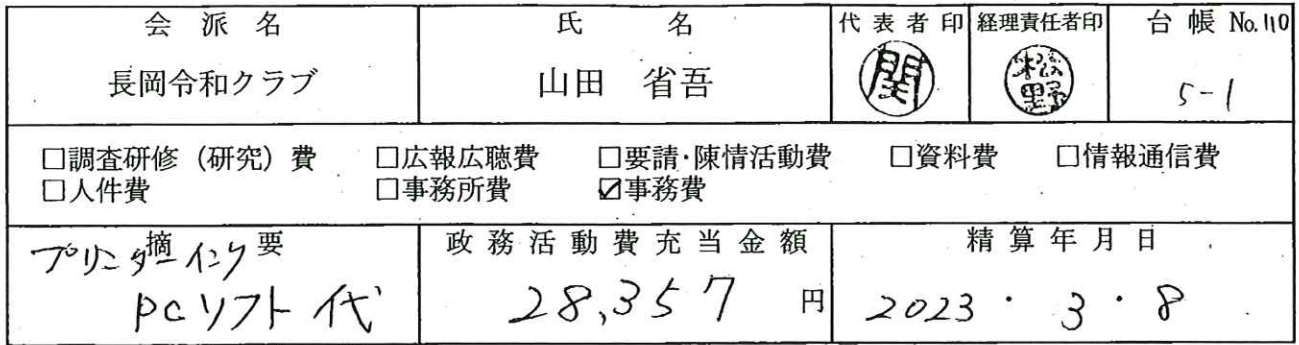 会派名 氏名 代表者印 経理責任者印 台帳 No.110
長岡令和クラブ 山田 省吾 関 松野 5-1
□調査研修（研究）費 □広報広聴費 □要請・陳情活動費 □資料費 □情報通信費
□人件費 □事務所費 ☑事務費
摘要 政務活動費充当金額 精算年月日
プリンターインク
PCソフト代 28,357 円 2023・3・8